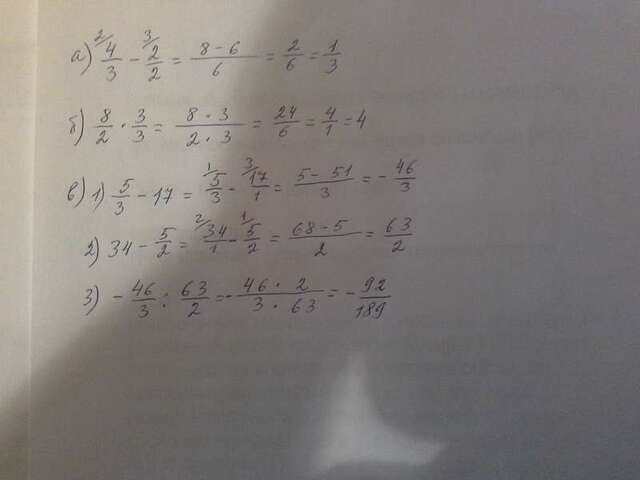 а) 2/ 4/3 - 3/ 2/2 = (8-6)/6 = 2/6 = 1/3
б) 8/2 · 3/3 = (8·3)/(2·3) = 24/6 = 4/1 = 4
в) 1) 5/3 - 17 = 1/ 5/3 - 3/ 17/1 = (5-51)/3 = -46/3
2) 34 - 5/2 = 2/ 34/1 - 1/ 5/2 = (68-5)/2 = 63/2
3) -46/3 : 63/2 = -(46·2)/(3·63) = -92/189